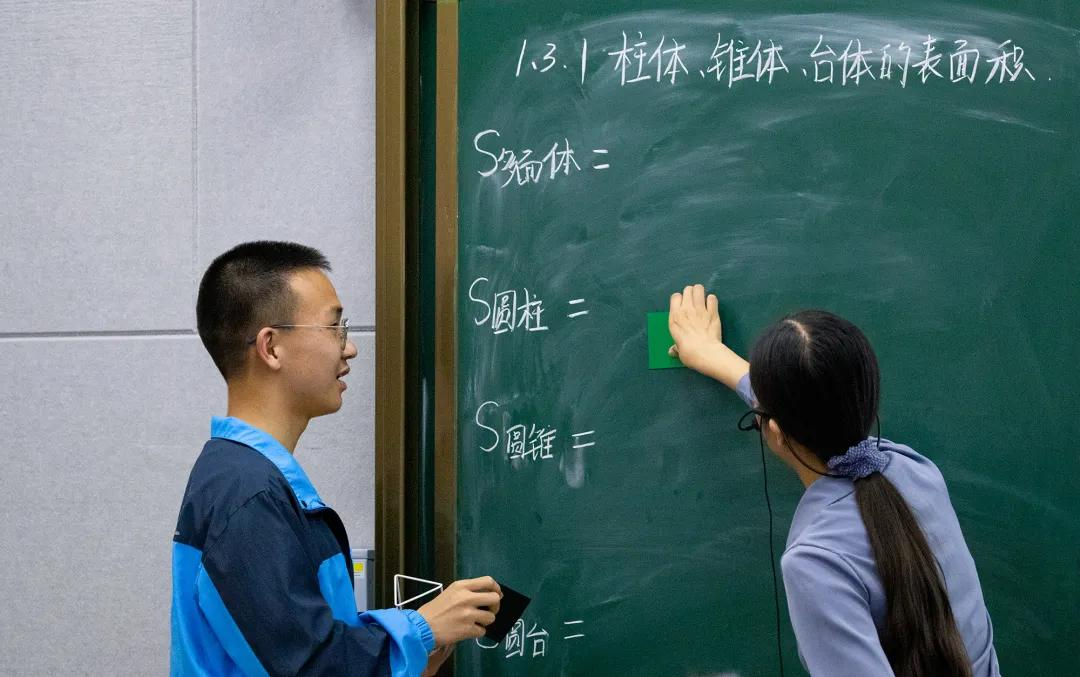 1.3.1 柱体、锥体、台体的表面积.
S多面体 =
S圆柱 =
S圆锥 =
S圆台 =